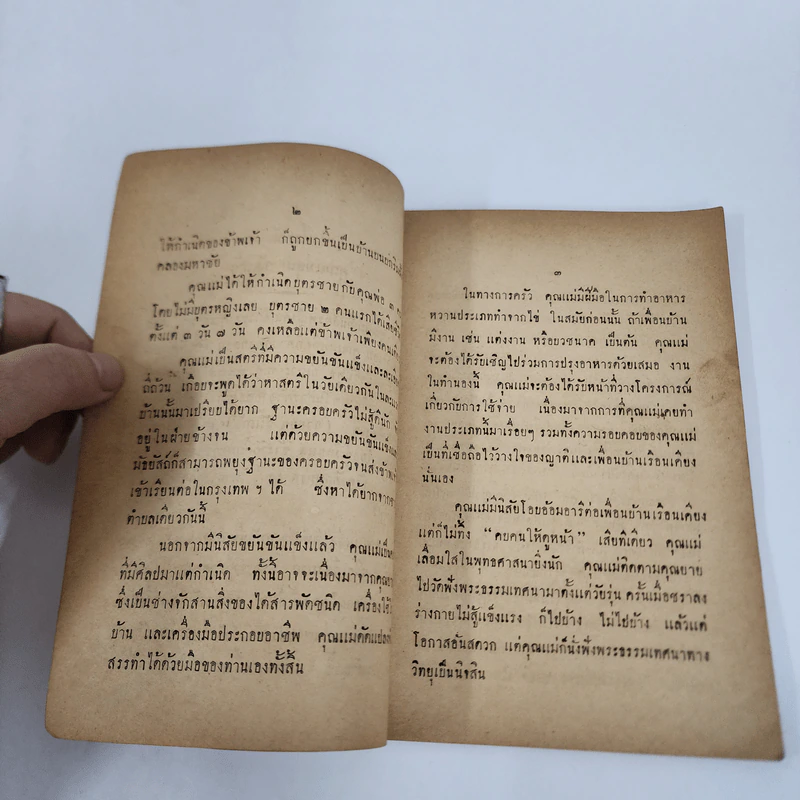 ๒
ให้กำเนิดของข้าพเจ้า ก็ถูกยกขึ้นเป็นย้านยน
คลองมหาชัย
คุณแม่ได้ให้กำเนิดบุตรชายกับคุณพ่อ ๓ ค
โดยไม่มีบุตรหญิงเลย บุตรชาย ๒ คนแรกได้เสียชี
ตั้งแต่ ๓ วัน ๗ วัน คงเหลือแต่ข้าพเจ้าเพียงคนเ
คุณแม่เป็นสตรีที่มีความขยันขันแข็งและละเอี
ถี่ถ้วน เกือบจะพูดได้ว่าหาสตรีในวัยเดียวกันในละแ
บ้านนั้นมาเปรียบได้ยาก ฐานะครอบครัวไม่สู้ดีนัก
อยู่ในฝ่ายข้างจน แต่ด้วยความขยันขันแข็งแ
มัธยัสถ์ก็สามารถพยุงฐานะของครอบครัวจนส่งข้าพเจ้
เข้าเรียนต่อในกรุงเทพ ฯ ได้ ซึ่งหาได้ยากจาก
ตำบลเดียวกันนี้
นอกจากมีนิสัยขยันขันแข็งแล้ว คุณแม่เป็น
ที่มีศิลปมาแต่กำเนิด ทั้งนี้อาจจะเนื่องมาจากคุณ
ซึ่งเป็นช่างจักสานสิ่งของได้สารพัดชนิด เครื่องใช้
บ้าน และเครื่องมือประกอบอาชีพ คุณแม่ดัดแปลง
สรรทำได้ด้วยมือของท่านเองทั้งสิ้น
๓
ในทางการครัว คุณแม่มีฝีมือในการทำอาหาร
หวานประเภททำจากไข่ ในสมัยก่อนนั้น ถ้าเพื่อนบ้าน
มีงาน เช่น แต่งงาน หรือบวชนาค เป็นต้น คุณแม่
จะต้องได้รับเชิญไปร่วมการปรุงอาหารด้วยเสมอ งาน
ในทำนองนี้ คุณแม่จะต้องได้รับหน้าที่วางโครงการณ์
เกี่ยวกับการใช้จ่าย เนื่องมาจากการที่คุณแม่เคยทำ
งานประเภทนี้มาเรื่อยๆ รวมทั้งความรอบคอบของคุณแม่
เป็นที่เชื่อถือไว้วางใจของญาติและเพื่อนบ้านเรือนเคียง
นั่นเอง
คุณแม่มีนิสัยโอบอ้อมอารีต่อเพื่อนบ้านเรือนเคียง
แต่ก็ไม่ทิ้ง “คบคนให้ดูหน้า” เสียทีเดียว คุณแม่
เลื่อมใสในพุทธศาสนายิ่งนัก คุณแม่ติดตามคุณยาย
ไปวัดฟังพระธรรมเทศนามาตั้งแต่วัยรุ่น ครั้นเมื่อชราลง
ร่างกายไม่สู้แข็งแรง ก็ไปบ้าง ไม่ไปบ้าง แล้วแต่
โอกาสอันสดวก แต่คุณแม่ก็นั่งฟังพระธรรมเทศนาทาง
วิทยุเป็นนิจสิน